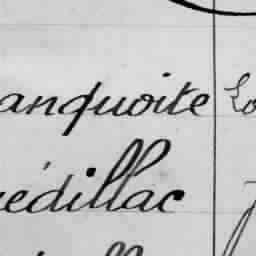 anquoite Lo
édillac